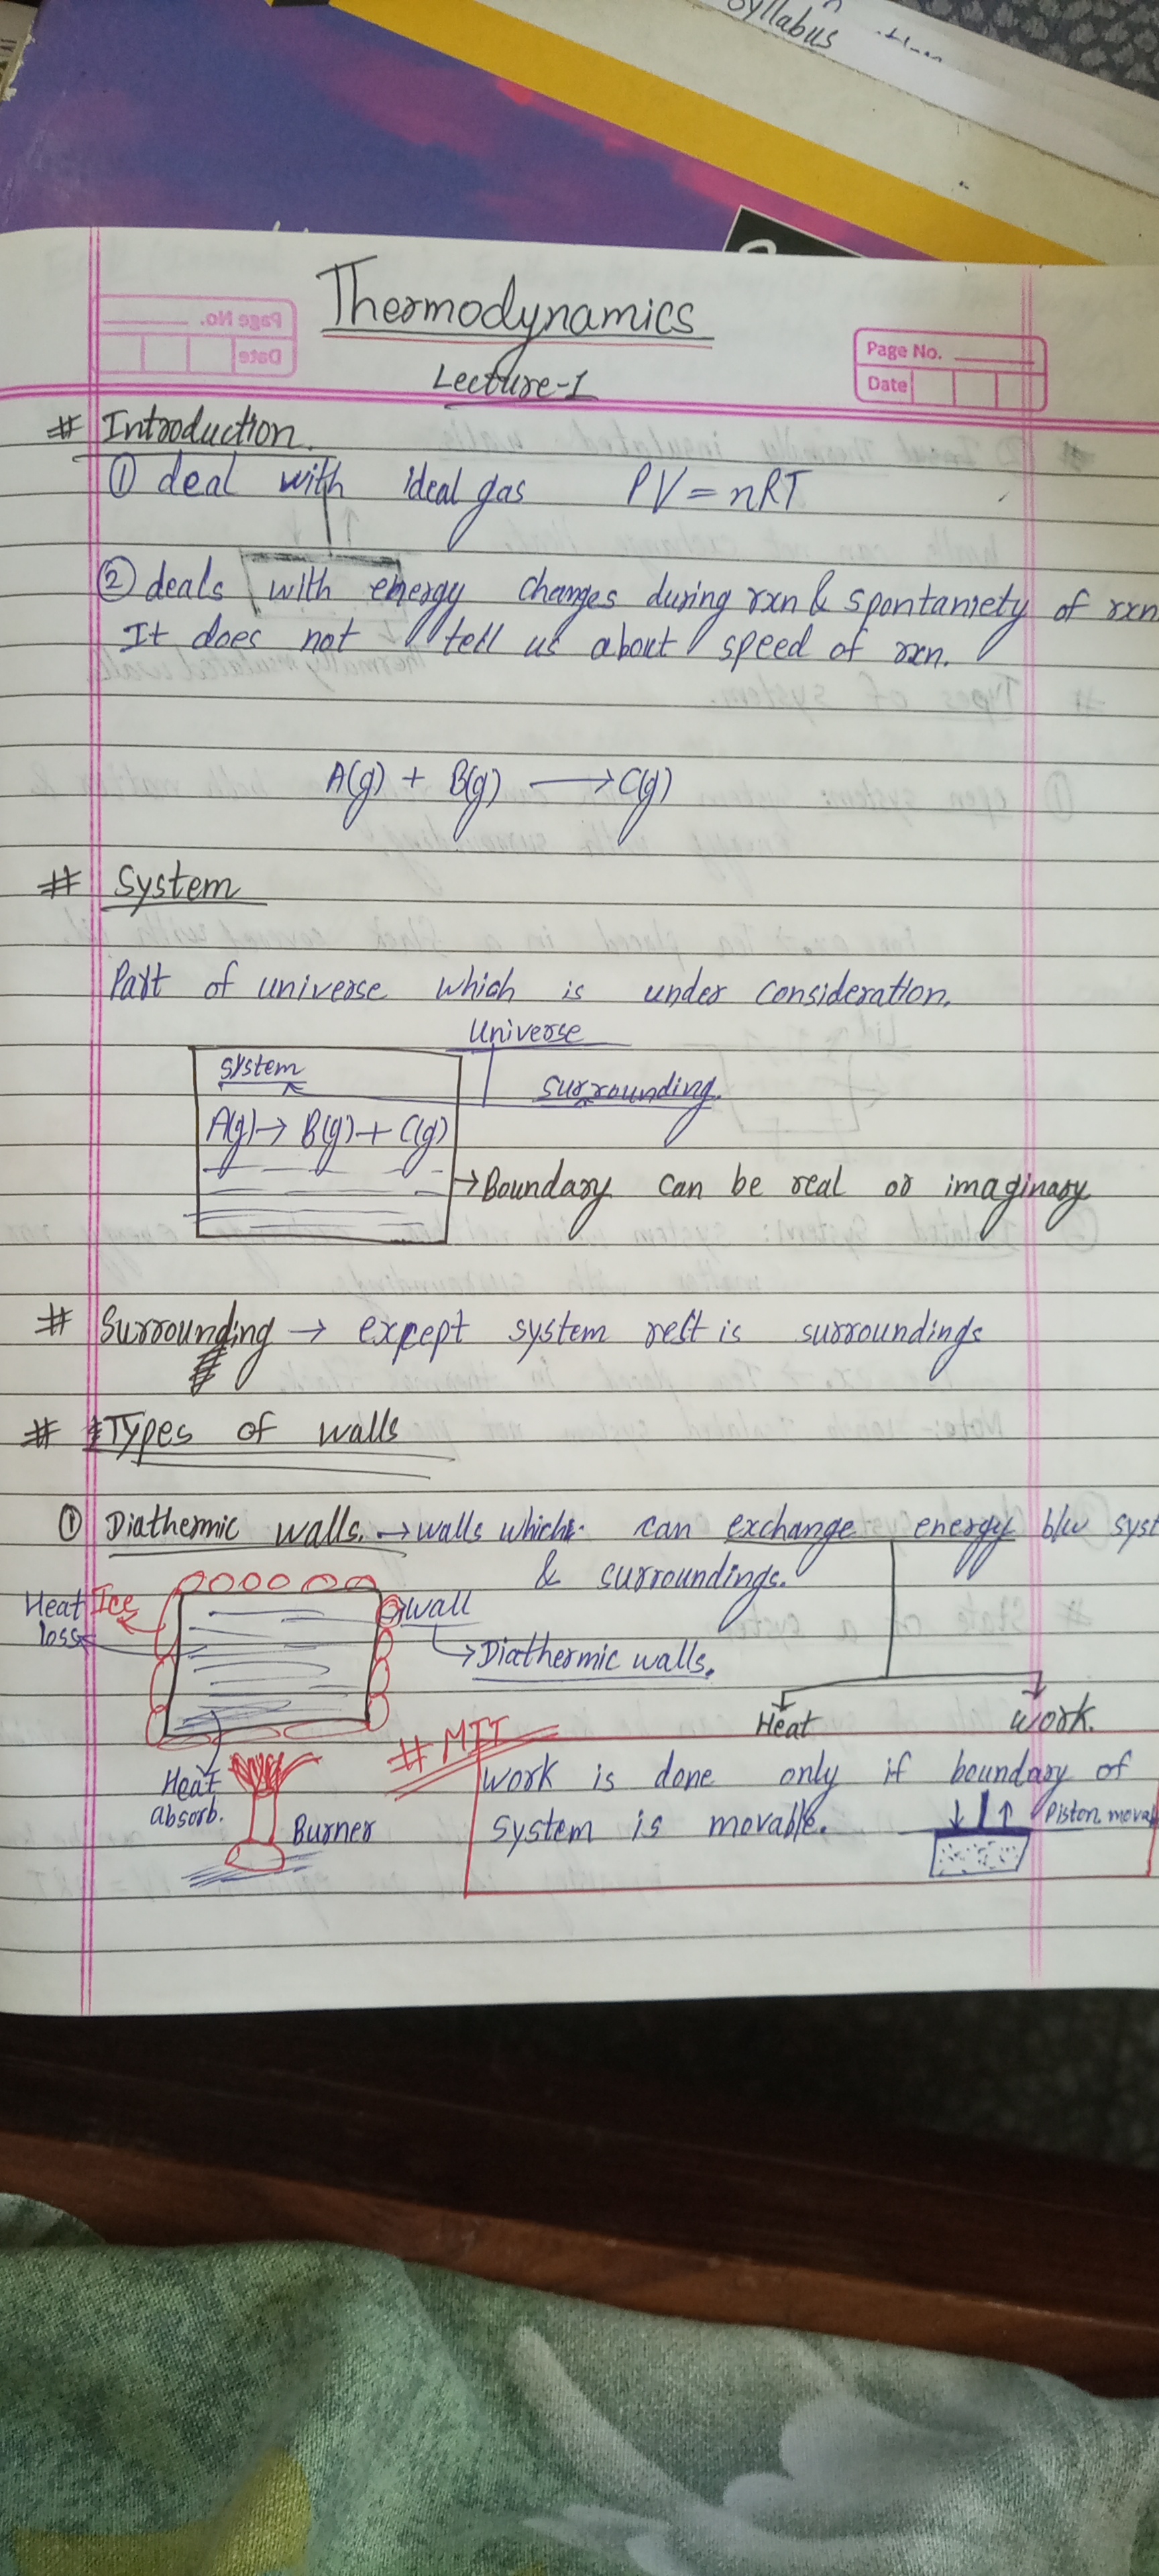 Syllabus
Thermodynamics
Page No.
Date
Lecture-1
# Introduction
① deal with ideal gas PV = nRT
② deals with energy changes during rxn & spontaniety of rxn
It does not tell us about speed of rxn.
A(g) + B(g) → C(g)
# System
Part of universe which is under consideration.
Universe
system
surrounding.
A(g) → B(g) + C(g)
→ Boundary can be real or imaginary
# Surrounding → except system rest is surroundings
# Types of walls
① Diathermic walls. → walls which can exchange energy b/w syst
& surroundings.
Heat loss
Ice
wall
→ Diathermic walls.
Heat
work.
# MTT
Heat absorb.
Burner
work is done only if boundary of
system is movable.
Piston mova